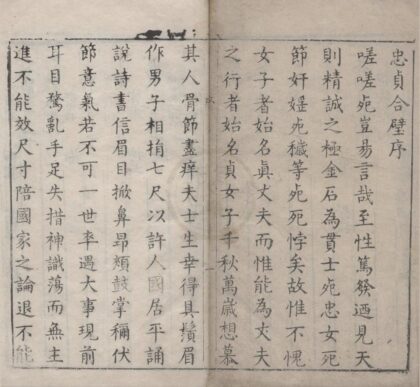 忠貞合璧序
嗟嗟死豈易言哉至性篤發迺見天
則精誠之極金石為貫士死忠女死
節奸婬死穢等死死悖矣故惟不愧
女子者始名眞丈夫而惟能為丈夫
之行者始名貞女子千秋萬歲想慕
其人骨節盡痒夫士生幸得具鬚眉
作男子相捐七尺以許人國居平誦
說詩書信眉目掀鼻昻頰鼓掌稱伏
節意氣若不可一世率遇大事現前
耳目驚亂手足失措神識蕩而無主
進不能效尺寸陪國家之論退不能